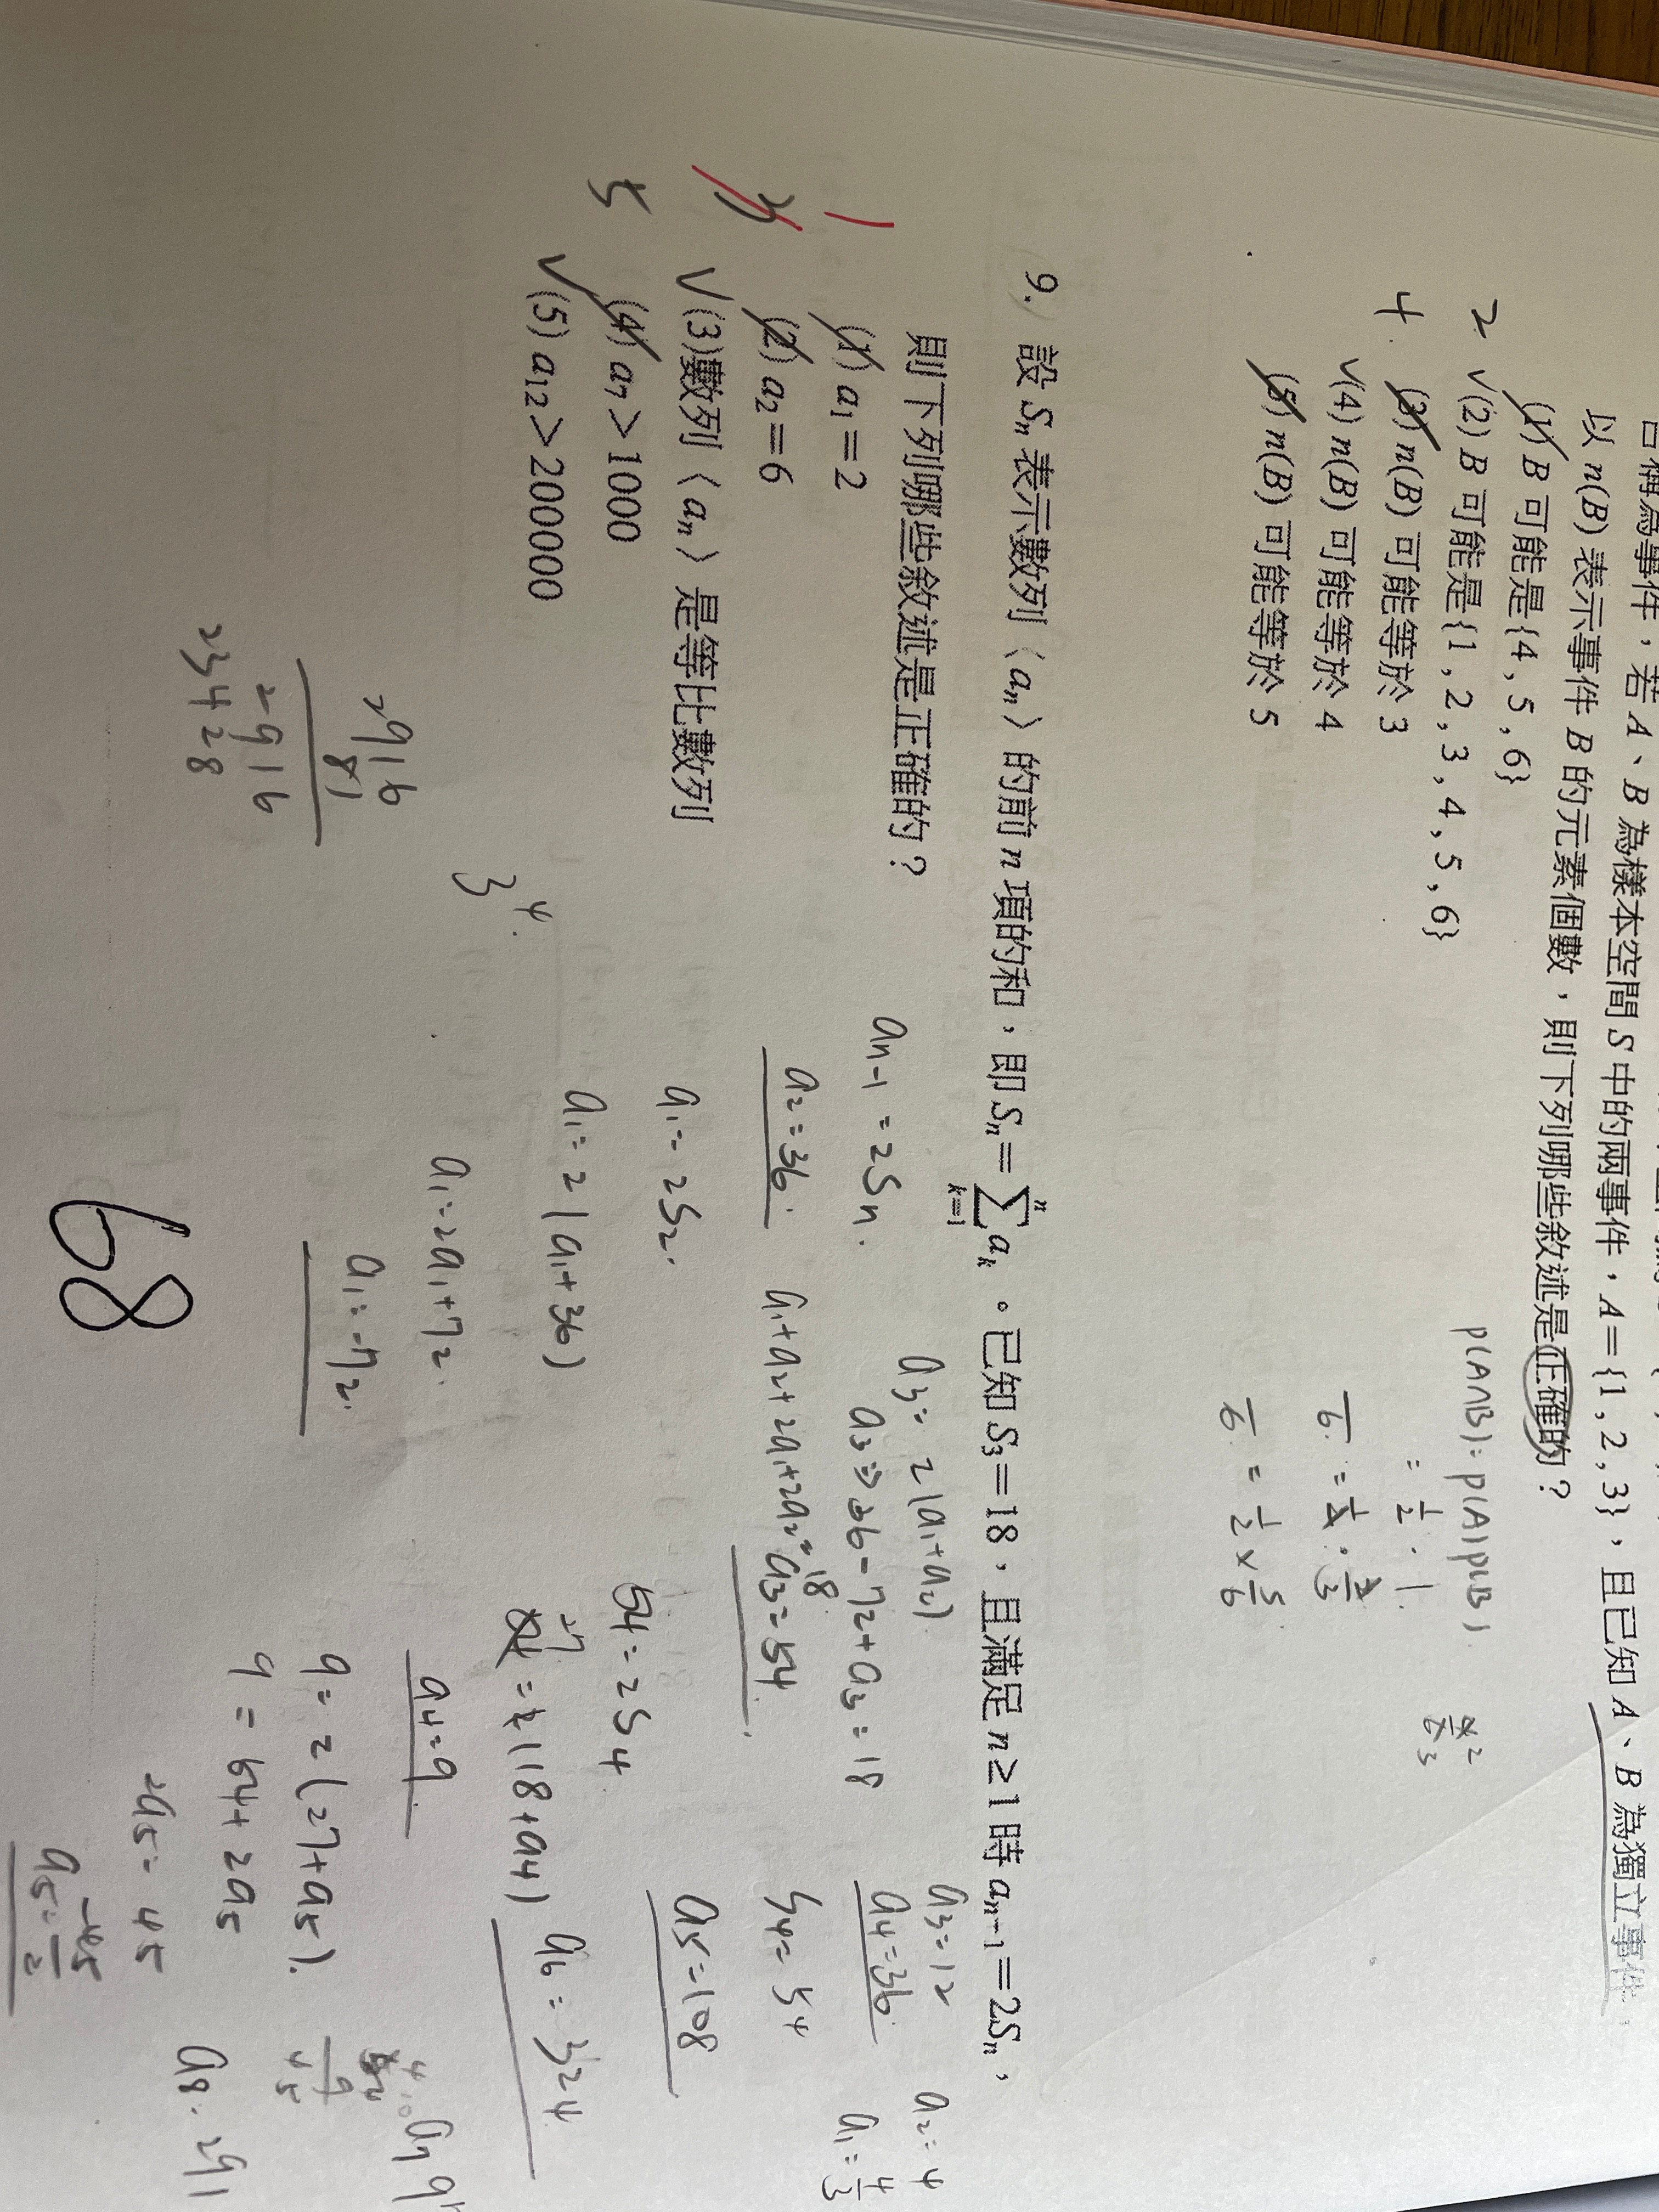 以 n(B) 表示事件 B 的元素個數，則下列哪些敘述是正確的？
日稱為事件，若 A、B 為樣本空間 S 中的兩事件，A＝{1,2,3}，且已知 A、B 為獨立事件，
(1) B 可能是{4,5,6}
2 √(2) B 可能是{1,2,3,4,5,6}
4 (3) n(B) 可能等於 3
√(4) n(B) 可能等於 4
(5) n(B) 可能等於 5
P(A∩B)=P(A)P(B)
= 1/2 · 1
/6 = 1/2 · 2/3
/6 = 1/2 × 5/6
9. 設 Sₙ 表示數列〈aₙ〉的前 n 項的和，即 Sₙ＝∑ₖ₌₁ⁿ aₖ。已知 S₃＝18，且滿足 n≥1 時 aₙ₋₁＝2Sₙ，
則下列哪些敘述是正確的？
1 (1) a₁＝2
3 (2) a₂＝6
√(3)數列〈aₙ〉是等比數列
5 (4) a₇＞1000
√(5) a₁₂＞200000
aₙ₋₁ = 2Sₙ.
a₂=36
a₁=2S₂.
a₁=2(a₁+36)
a₁=2a₁+72
a₁=-72.
a₃=2(a₁+a₂)
a₃⇒36-72+a₃=18
a₁+a₂+2a₁+2a₂=18
a₃=54
54=2S4
27=(18+a4)
a4=9
9=2(27+a5).
9=54+2a5
2a5=-45
a5=-45/2
a₃=12
a4=36
S4=54
a5=108
a6=324
a8=291
a₂=4
a₁=4/3
3⁴.
2916
81
2916
23428
68